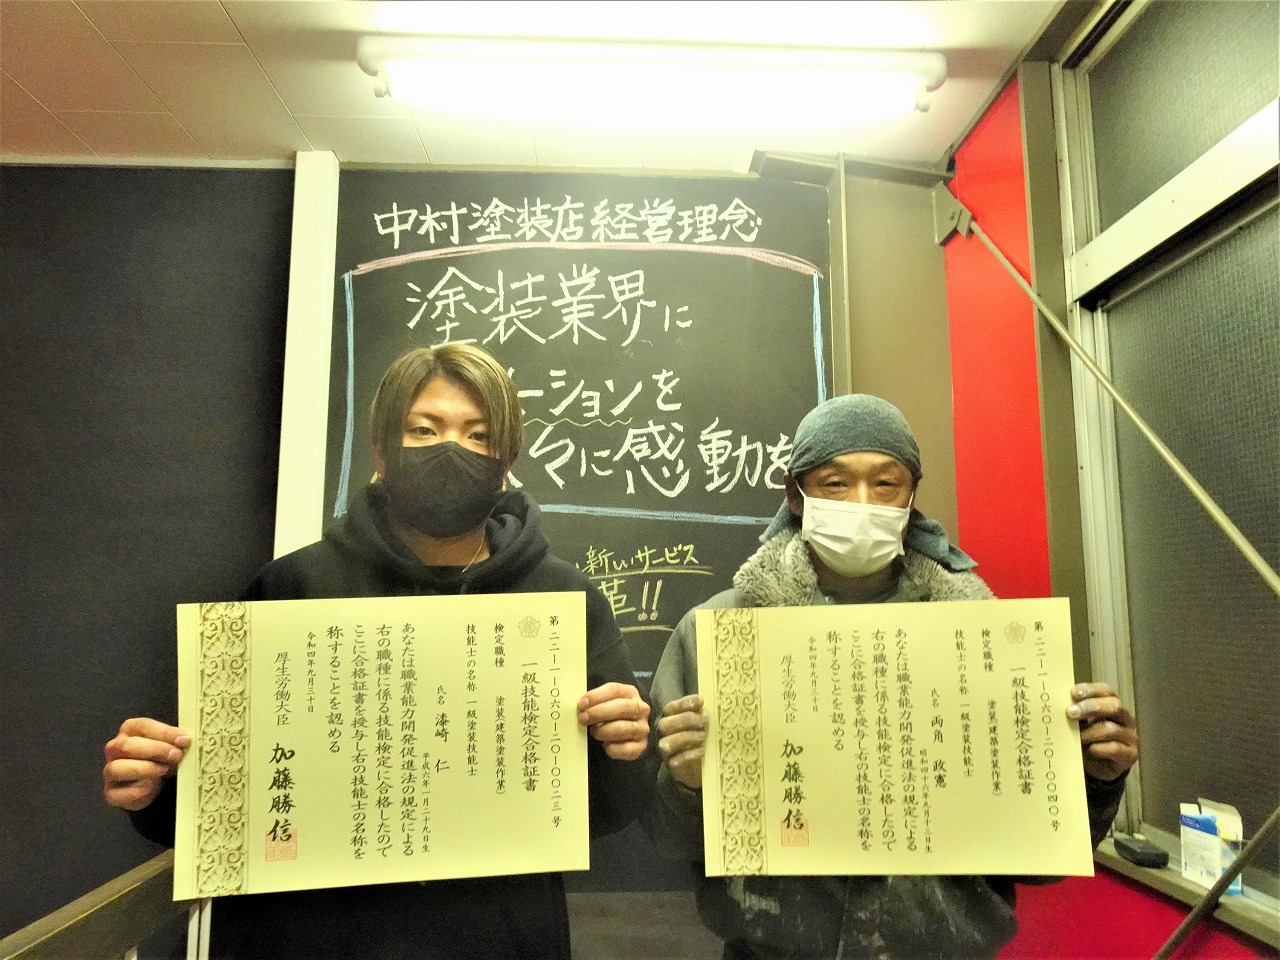 中村塗装店経営理念
塗装業界に
ーションを
々に感動を
新しいサービス
革!!
第二二-一-一〇六〇-二〇-〇〇二三号
一級技能検定合格証書
検定職種 塗装(建築塗装作業)
技能士の名称 一級塗装技能士
氏名 漆崎 仁
平成六年一月二十九日生
あなたは職業能力開発促進法の規定による
右の職種に係る技能検定に合格したので
ここに合格証書を授与し右の技能士の名称を
称することを認める
令和四年九月三十日
厚生労働大臣 加藤勝信
第二二-一-一〇六〇-二〇-〇〇四〇号
一級技能検定合格証書
検定職種 塗装(建築塗装作業)
技能士の名称 一級塗装技能士
氏名 両角 政憲
昭和四十六年九月十三日生
あなたは職業能力開発促進法の規定による
右の職種に係る技能検定に合格したので
ここに合格証書を授与し右の技能士の名称を
称することを認める
令和四年九月三十日
厚生労働大臣 加藤勝信